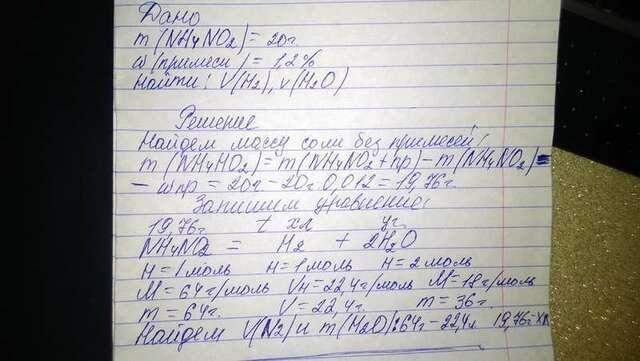 Дано
m (NH4NO2) = 20г.
ω (примеси) = 1,2%
Найти: V(H2), v(H2O)
Решение
Найдем массу соли без примесей:
m (NH4NO2) = m(NH4NO2 + пр) – m(NH4NO2) =
– ωпр = 20г – 20г 0,012 = 19,76г.
Запишем уравнение:
19,76г t хл уг
NH4NO2 = H2 + 2H2O
H = 1моль H = 1моль H = 2моль
M = 64г/моль VH = 22,4г/моль M = 18г/моль
m = 64г. V = 22,4г. m = 36г.
Найдем V(N2) и m(H2O): 64г – 22,4л 19,76г – Хл